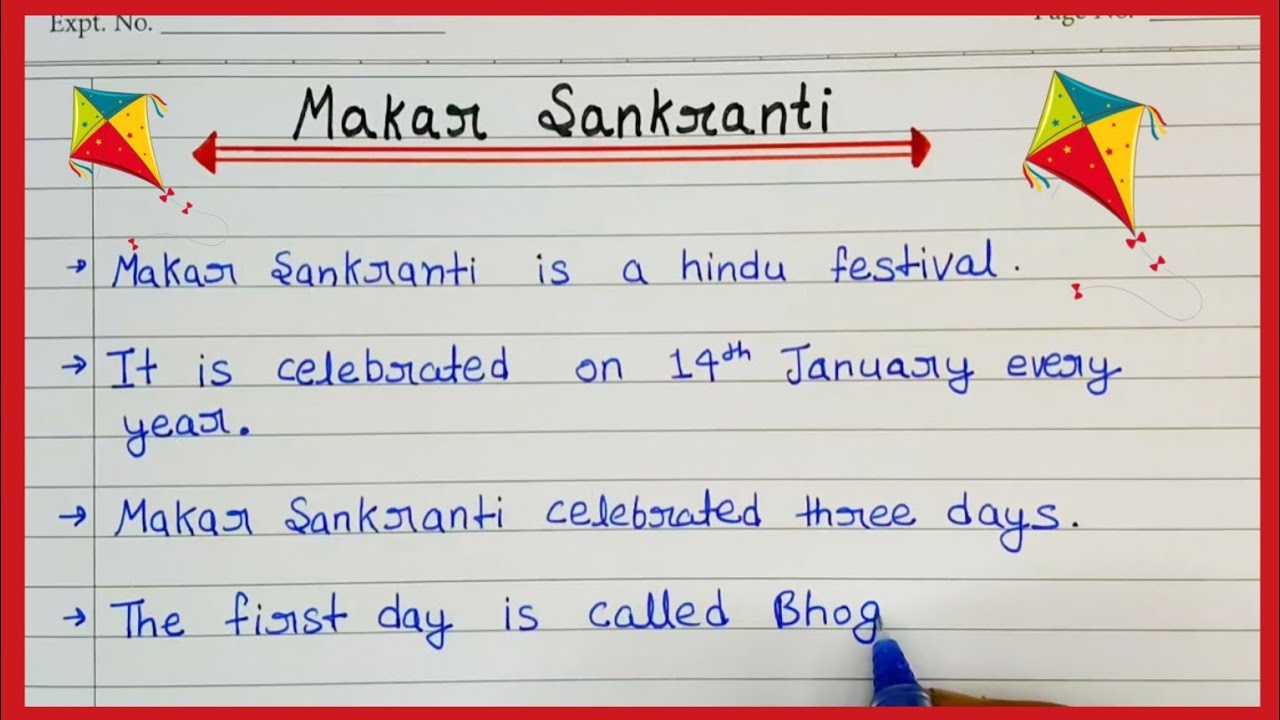 Expt. No.
Page No.
Makar Sankranti
→ Makar Sankranti is a hindu festival.
→ It is celebrated on 14th January every
year.
→ Makar Sankranti celebrated three days.
→ The first day is called Bhog